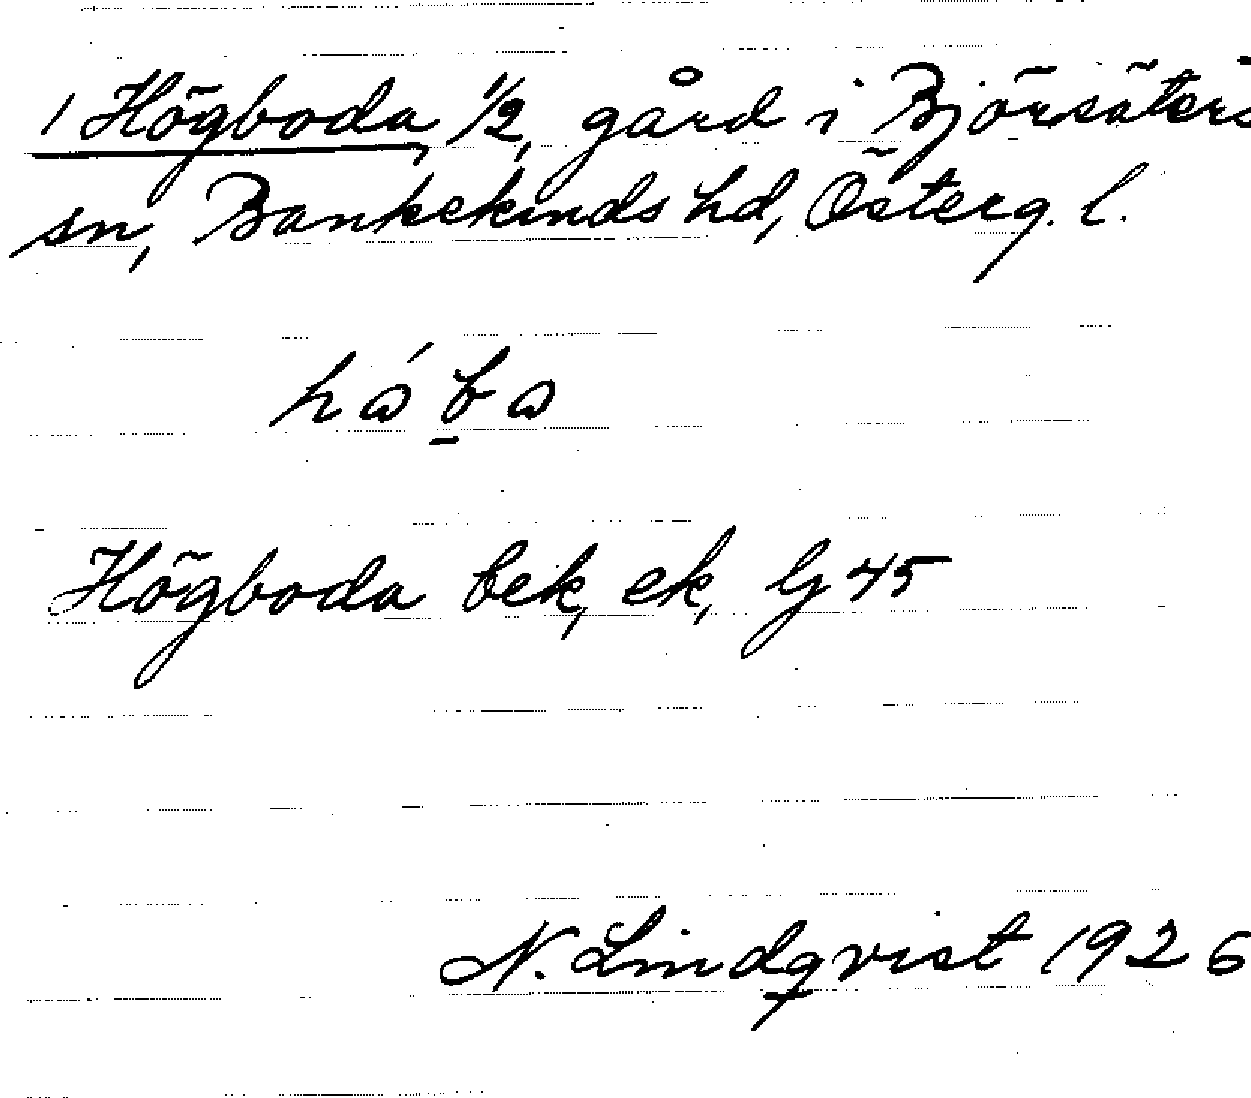 1 Högboda, 1/2, gård i Björsäters
sn, Bankekinds hd, Österg. l.
Högboda bek, ek, Gj 45
N. Lindqvist 1926